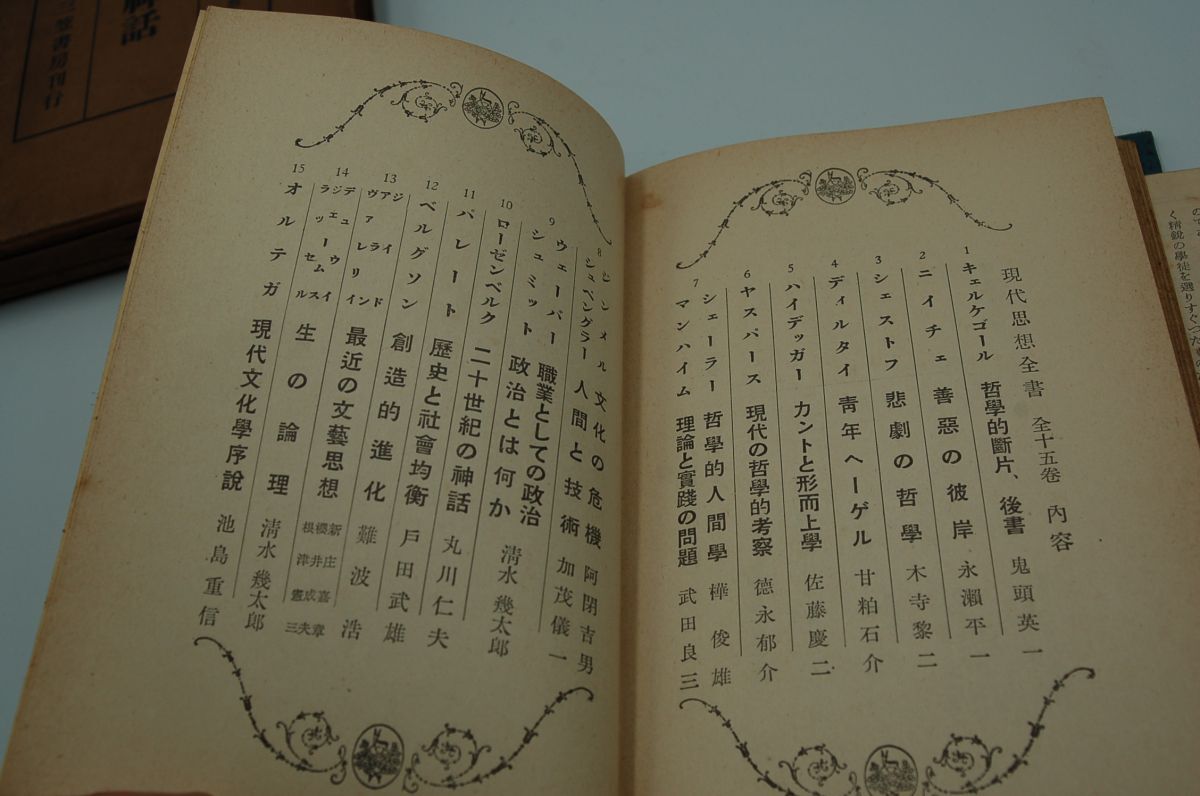 く精銳の學徒を選りすぐつた
現代思想全書 全十五卷 內容
1 キェルケゴール 哲學的斷片、後書 鬼頭英一
2 ニイチェ 善惡の彼岸 永瀨平一
3 シェストフ 悲劇の哲學 木寺黎二
4 ディルタイ 靑年ヘーゲル 甘粕石介
5 ハイデッガー カントと形而上學 佐藤慶二
6 ヤスパース 現代の哲學的考察 德永郁介
7 シェーラー 哲學的人間學 樺俊雄
マンハイム 理論と實踐の問題 武田良三
8 ジンメル 文化の危機 阿閉吉男
シュペングラー 人間と技術 加茂儀一
9 ウェーバー 職業としての政治
シュミット 政治とは何か 淸水幾太郎
10 ローゼンベルク 二十世紀の神話 丸川仁夫
11 パレート 歷史と社會均衡 戶田武雄
12 ベルグソン 創造的進化 難波浩
13 ジイド アラン ヴァレリイ 最近の文藝思想 新庄嘉章 櫻井成夫 根津憲三
14 デューイ ジェームス ラッセル 生の論理 淸水幾太郎
15 オルテガ 現代文化學序說 池島重信
神話
三笠書房刊行